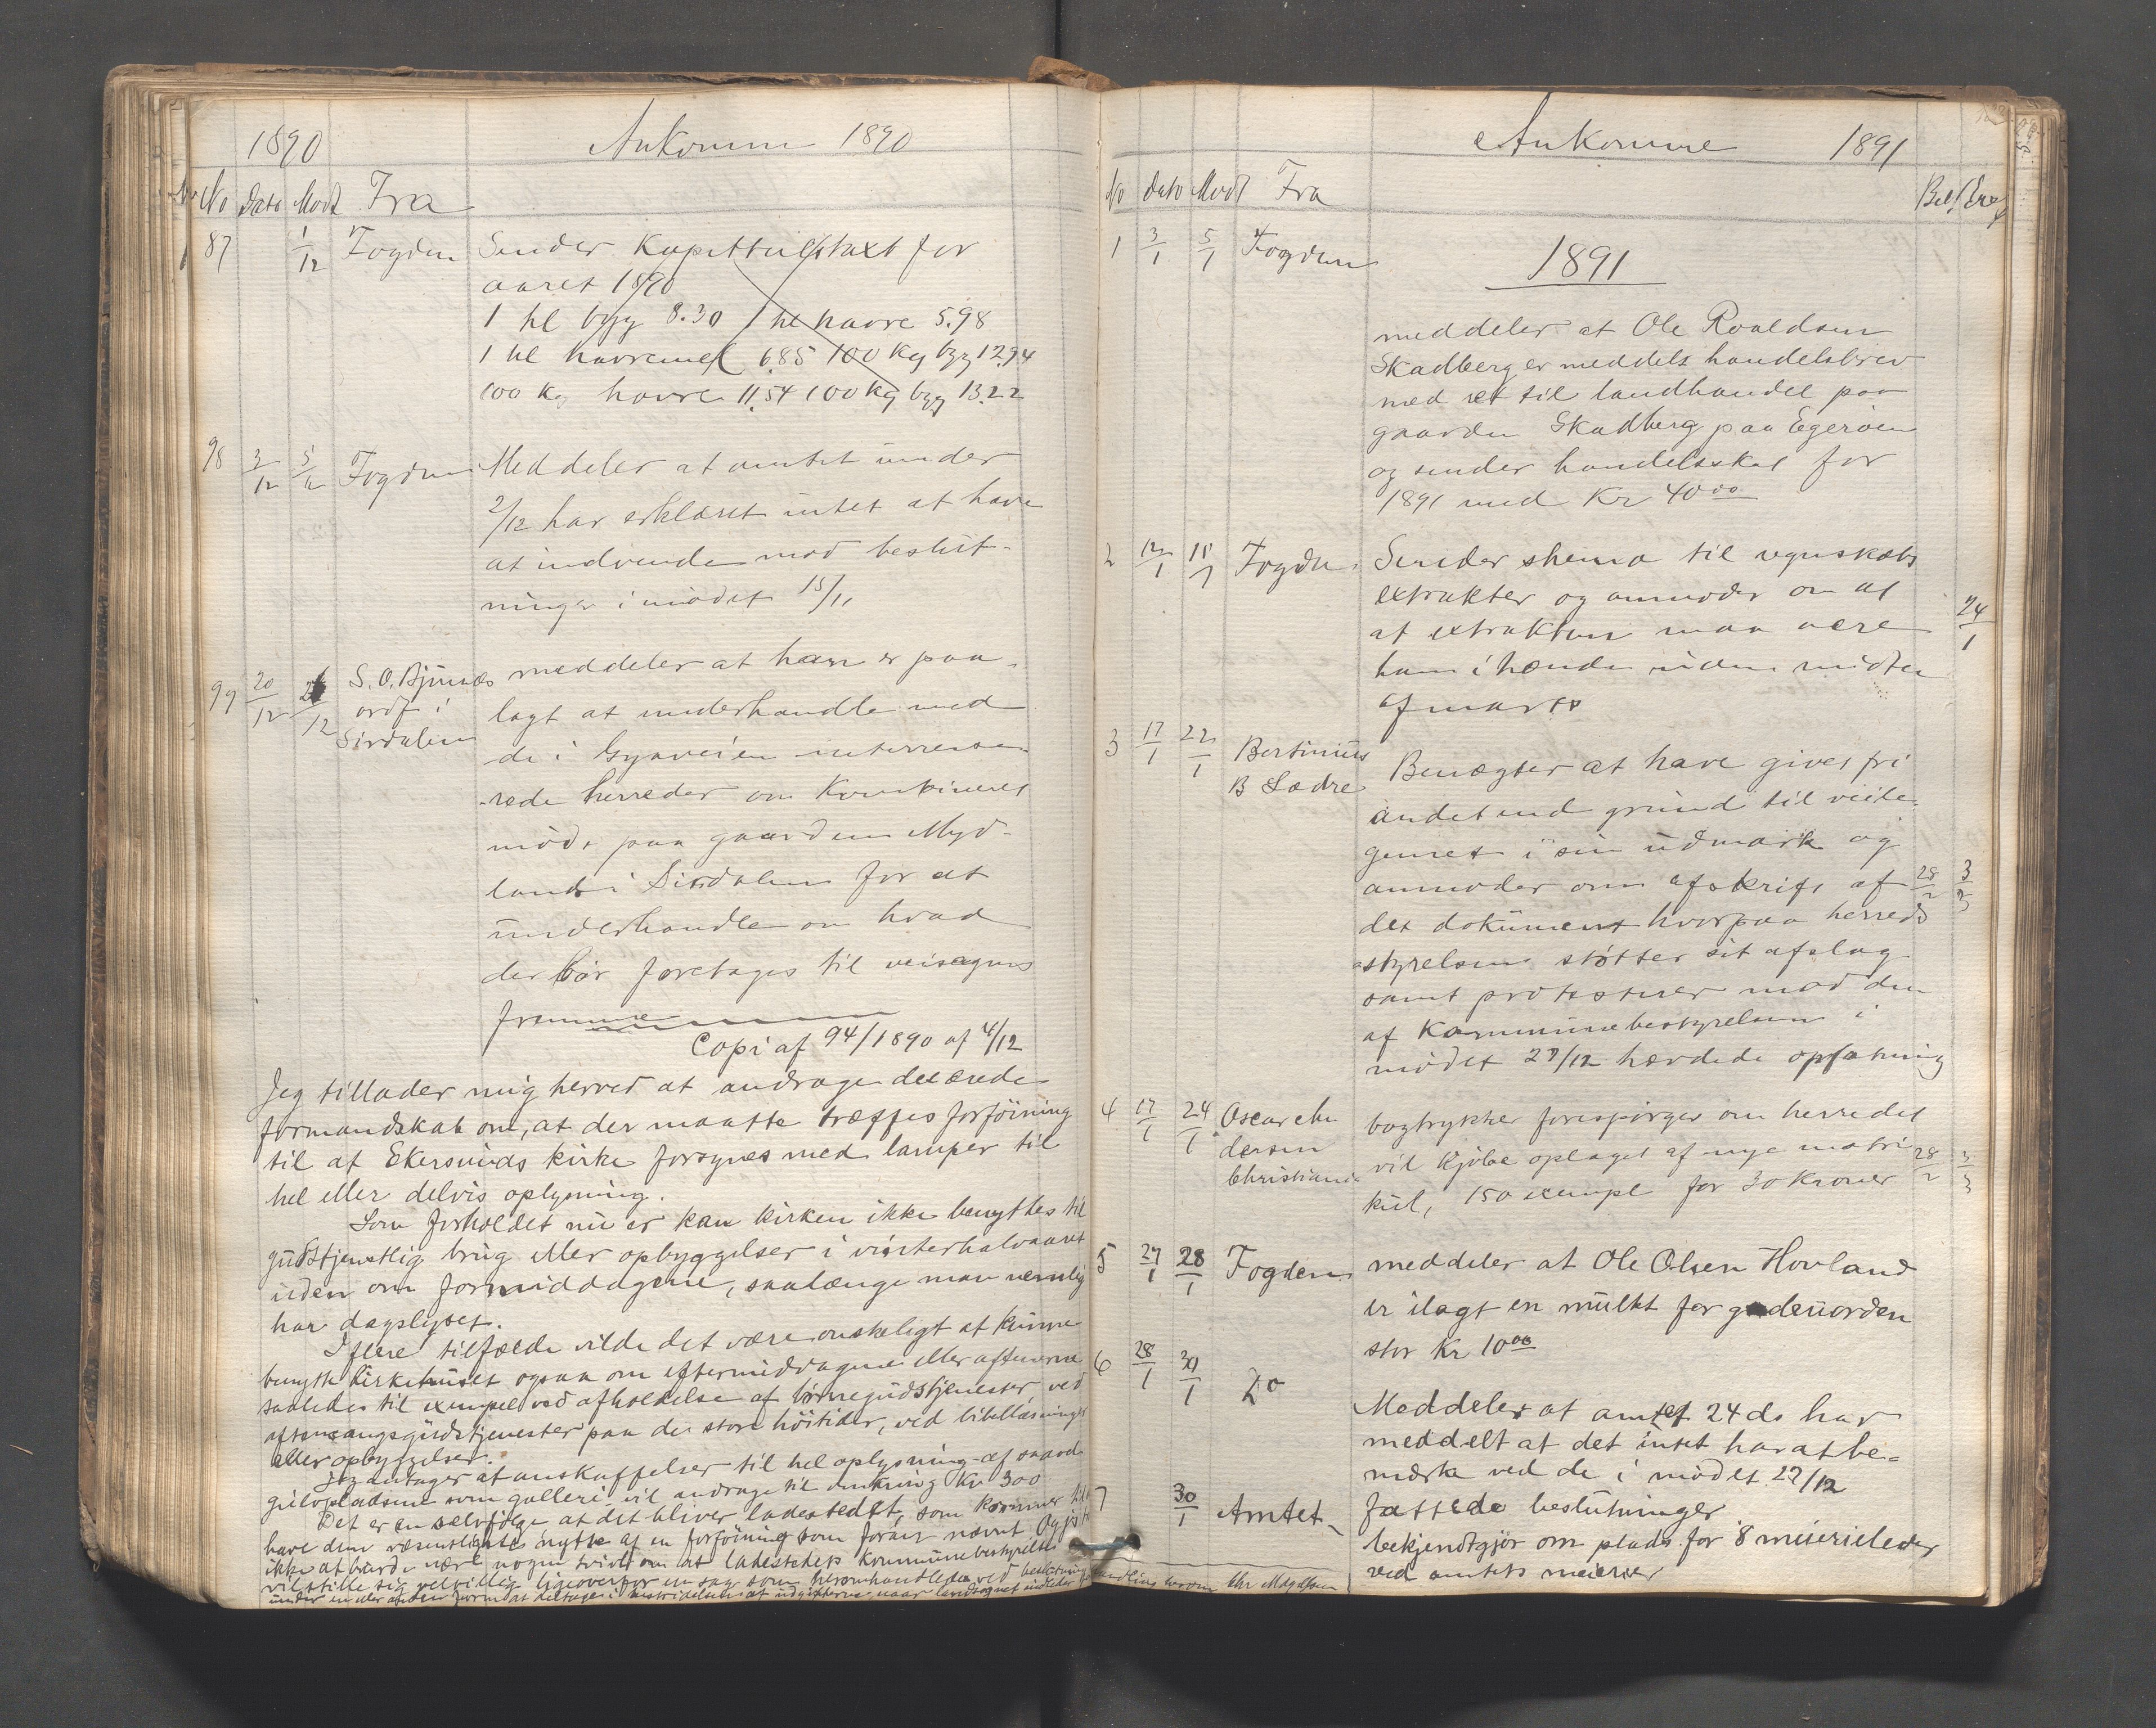 1890 Ankomne 1890
No Dato Modt Fra
87 1/12 Fogden Sender Kapitteltakst for
aaret 1890
1 hl byg 8.30 1 hl havre 5.98
1 hl havremel 6.85 100 Kg byg 12.94
100 Kg havre 11.54 100 Kg byg 13.22
98 3/12 5/12 Fogden Meddeler at amtet under
2/12 har erklæret intet at have
at indvende mod beslut-
ninger i mödet 15/11
99 20/12 2/12 S. O. Bjunæs meddeler at han er paa-
ordf i lagt at underhandle med
Sirdalen de i Gyaveien interresse-
rede herreder om Kombineret
möde paa gaarden Myd-
land i Sirdalen for at
underhandle om hvad
der bör foretages til veisagens
fremme
Copi af 94/1890 af 4/12
Jeg tillader mig herved at andrage det ærede
formandskab om, at der maatte træffes forföining
til at Ekersunds kirke forsynes med lamper til
hel eller delvis oplysning.
Som forholdet nu er kan kirken ikke benyttes til
gudstjenstlig brug eller opbyggelser i vinterhalvaaret
uden om formiddagene, saalænge man nemlig
har dagslyset.
I flere tilfælde vilde det være önskeligt at kunne
benytte kirkehuset ogsaa om eftermiddagene eller aftenerne
saaledes til exempel ved afholdelse af börnegudstjenester, ved
aftensangsgudstjenester paa de store höitider, ved bibellæsninger
eller opbyggelser.
Jeg antager at anskaffelser til hel oplysning af saavel
gulvpladsen som galleri vil andrage til omkring Kr 300
Det er en selvfölge at det bliver ladestedet, som kommer til at
have den væsentligste nytte af en forföining som foran nævnt. Og jeg
ikke at burde være nogen tvivl om at ladestedets kommunebestyrelse
vil stille sig velvillig ligeoverfor en sag som heromhandlede ved beslutning
under en eller anden form at deltage i bestridelsen af udgifterne, naar landsognet indleder
Ankomne 1891
No Dato Modt Fra Bes! Exp
1 3/1 5/1 Fogden 1891
meddeler at Ole Roaldsen
Skadberg er meddelt handelsbrev
med ret til landhandel paa
gaarden Skadberg paa Egeröen
og sender handelsskat for
1891 med Kr 40 00
2 12/1 15/1 Fogden Sender shema til regnskabs
extrakter og anmoder om at
at extrakten maa være 24/1
ham ihænde inden midten
af marts
3 17/1 22/1 Bertinius Benægter at have givet fri
B Sædre andet end grund til veite-
gennet i sin udmark og
anmoder om afskrift af 28/2 3/3
det dokument hvorpaa herreds
styrelsen stötter sit afslag
samt protesterer mod den
af Kommunebestyrelsen i
mödet 29/12 hævdede opfatning
4 17/1 24/1 Oscar An bogtrykker forespörges om herredet
dersen vil kjöbe oplaget af nye matri 28/2 3/3
Christiania kul, 150 exempl for 30 Kroner
5 27/1 28/1 Fogden meddeler at Ole Olsen Hovland
er ilagt en mulkt for gadeuorden
stor Kr 10 00
6 28/1 30/1 Do Meddeler at amtet 24 ds har
meddelt at det intet har at be-
mærke ved de i mödet 29/12
fattede beslutninger
7 30/1 Amtet bekjendtgjör om plads for 8 meierieelever
ved amtets meierier
handling herom Chr Magdssen